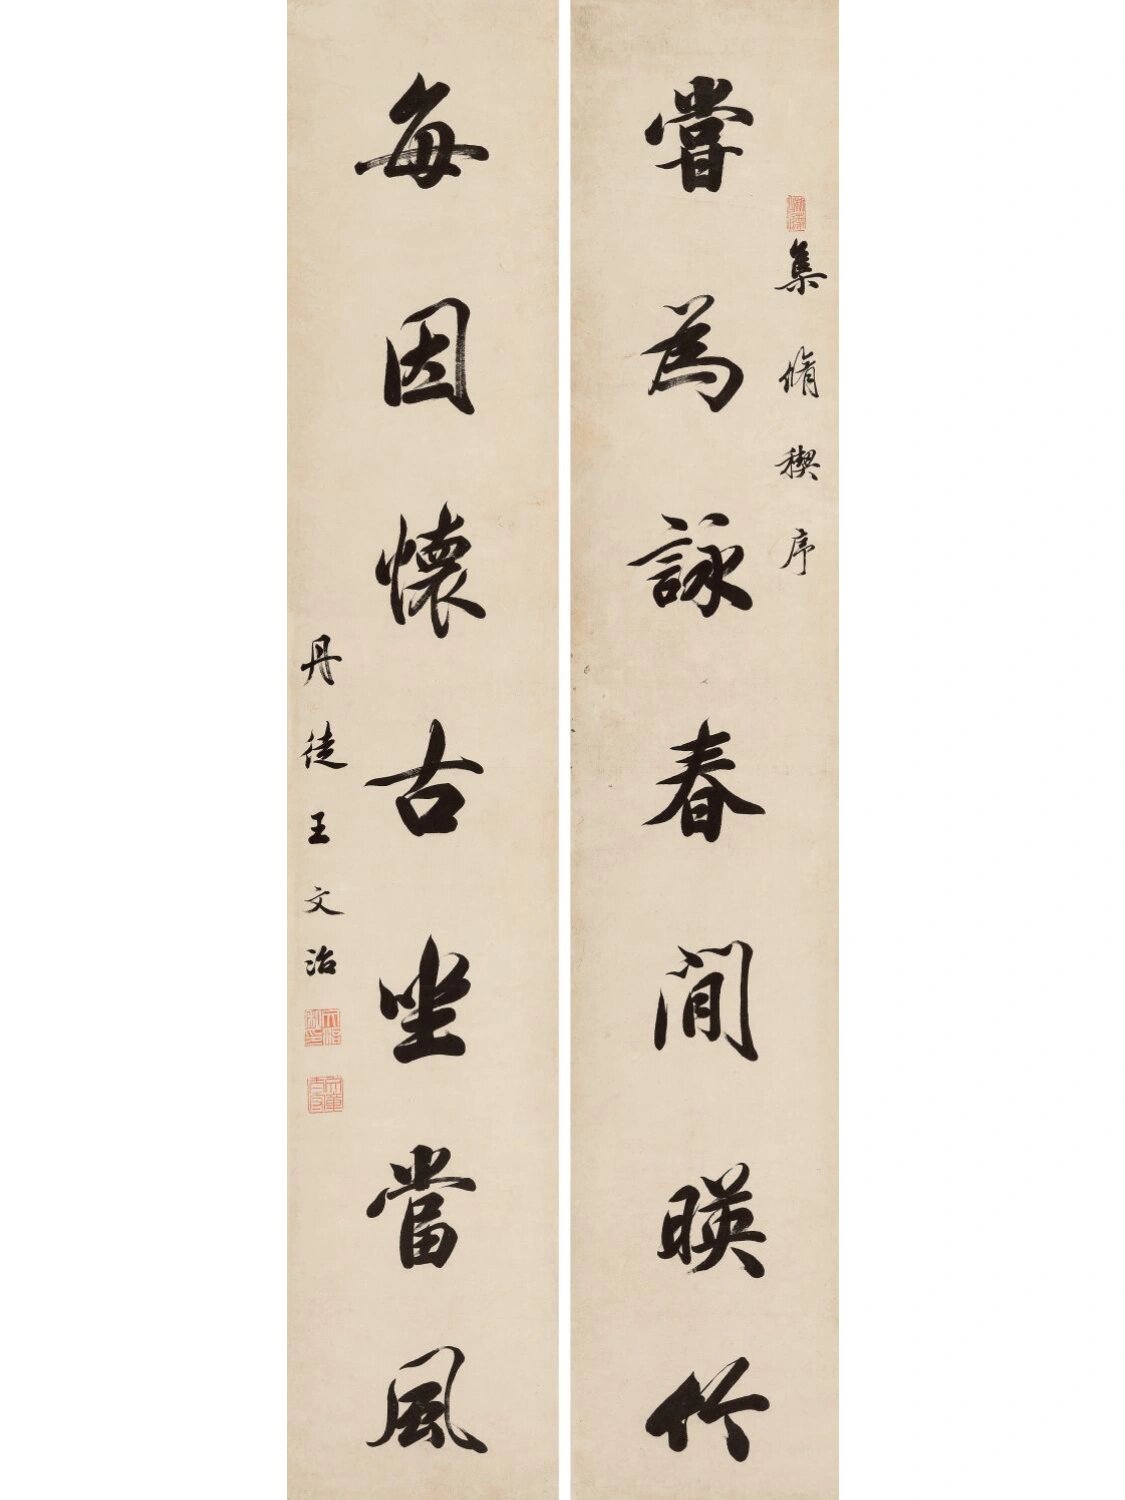 集脩稧序
嘗為詠春閒暎竹
每因懷古坐當風
丹徒王文治